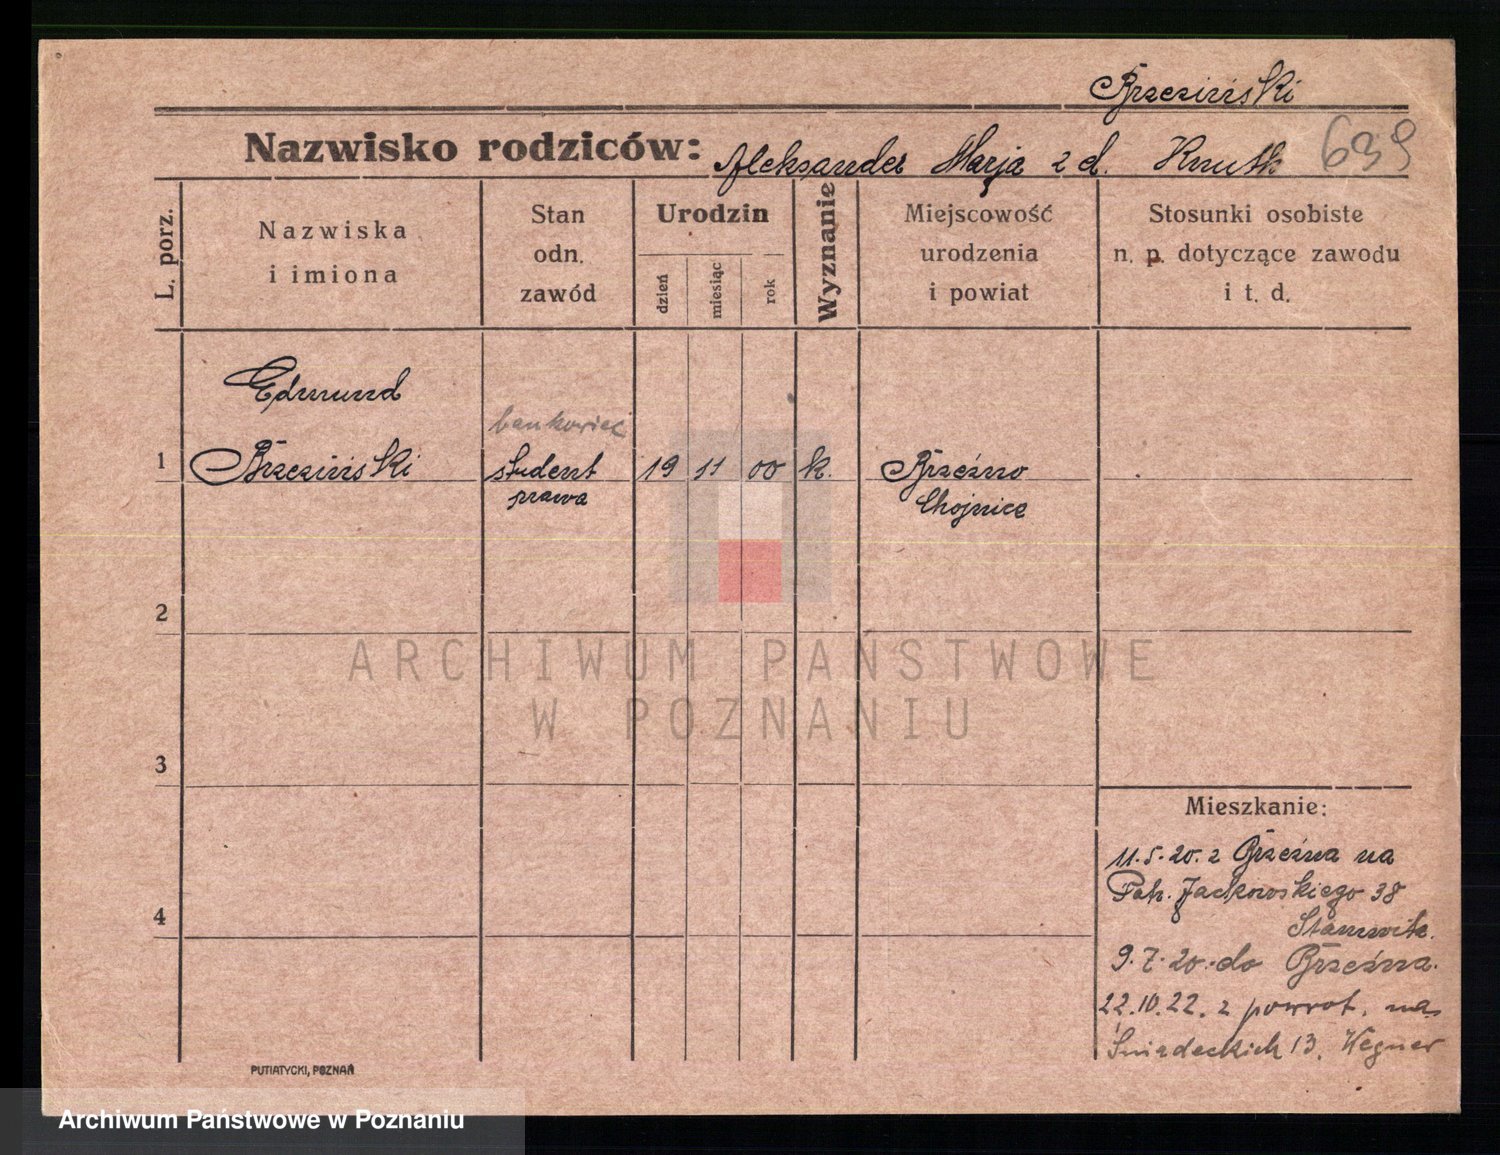 Brzeziński
Nazwisko rodziców: Aleksander Marja z d. Knutk 639
L. porz.
Nazwiska i imiona
Stan odn. zawód
Urodzin
dzień
miesiąc
rok
Wyznanie
Miejscowość urodzenia i powiat
Stosunki osobiste n. p. dotyczące zawodu i t. d.
Edmund
bankowiec
1 Brzeziński student 19 11 00 k. Brzeźno
prawa Chojnice
2
3
4
Mieszkanie:
11.5.20. z Brzeźna na
Patr. Jackowskiego 38
9.7.20. do Brzeźna.
22.10.22. z powrot. na
Śniadeckich 13. Wegner
PUTIATYCKI, POZNAŃ
ARCHIWUM PAŃSTWOWE
W POZNANIU
Archiwum Państwowe w Poznaniu